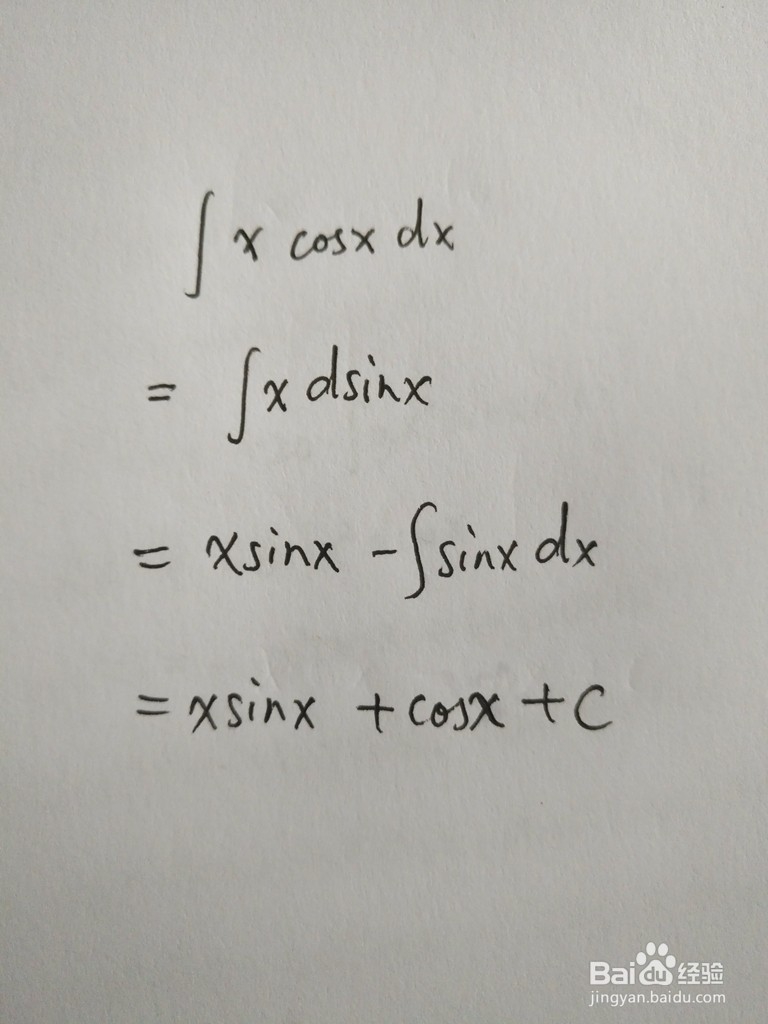 ∫ x cosx dx
= ∫ x dsinx
= xsinx - ∫ sinx dx
= xsinx + cosx + C
Baidu经验
jingyan.baidu.com